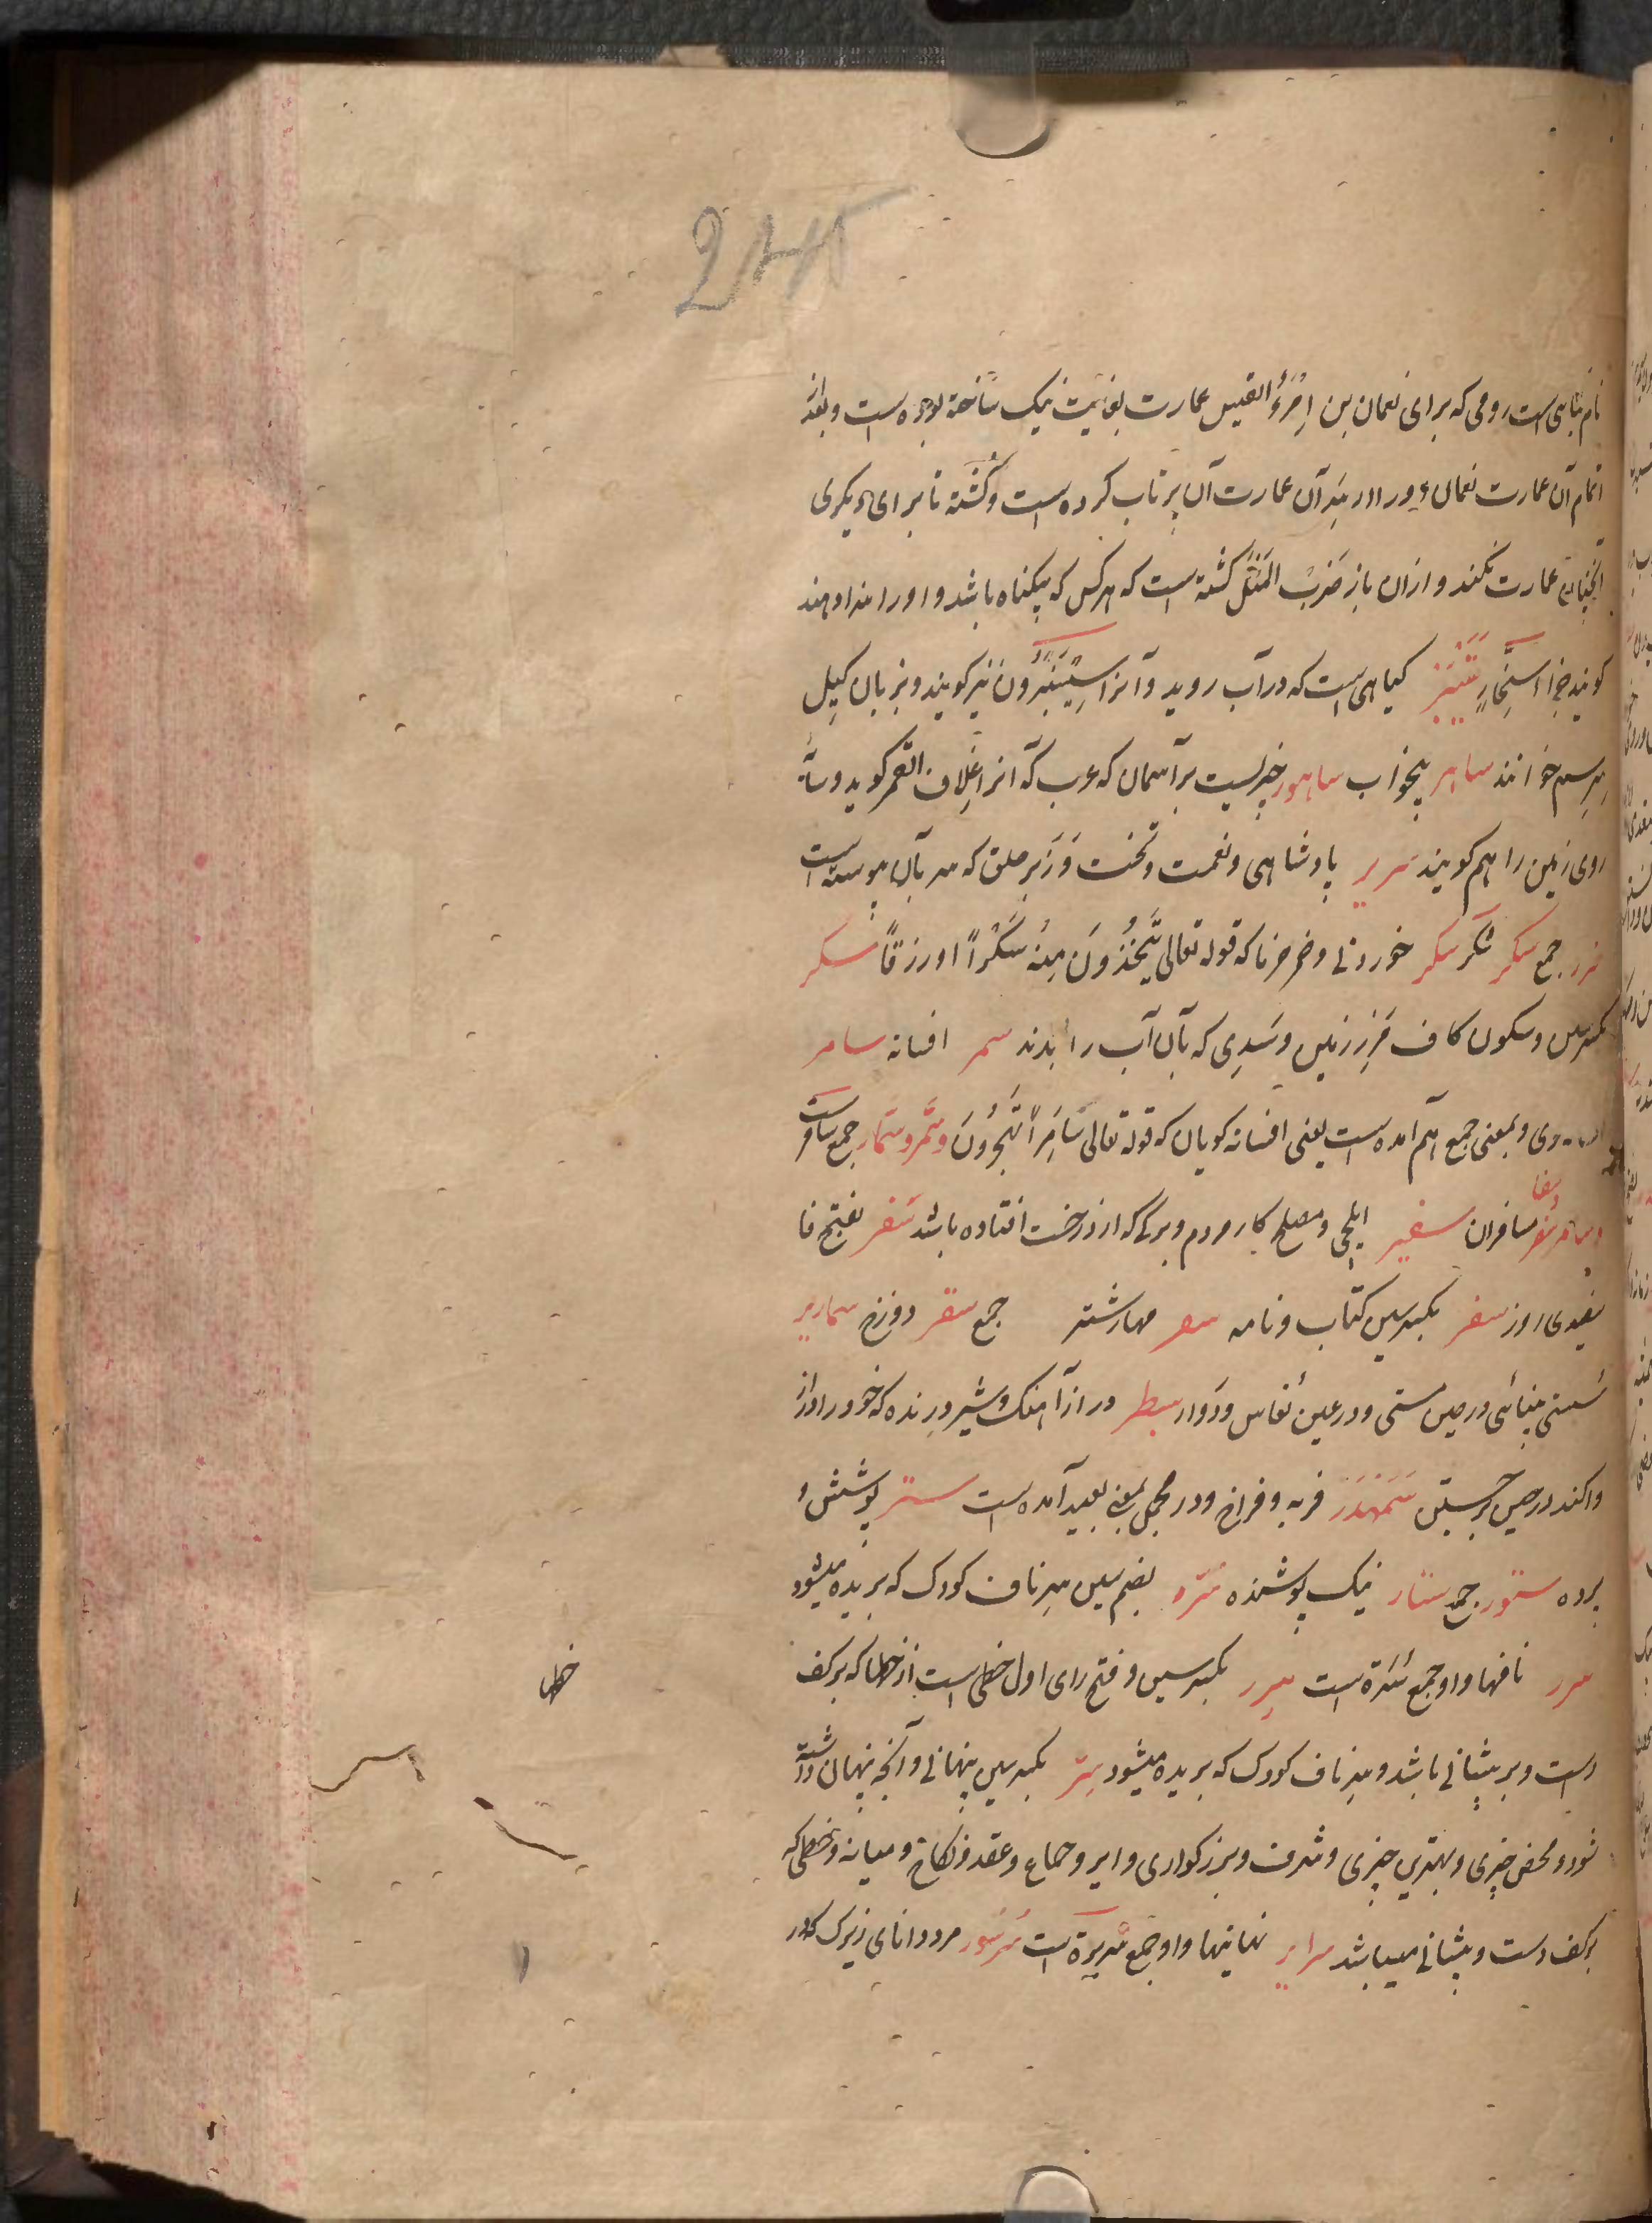 نام بنائی است رومی که برای نعمان بن اِمْرَؤُ القیس عمارت بغایت نیک ساخته بوده است و بعد از
اتمام آن عمارت نعمان ویرا از سر آن عمارت آن پرتاب کرده است و کُشته تا برای دیگری
آنچنان عمارت نکند و ازان باز ضَربُ المَثَل گشته است که هرکس که بیگناه باشد و او را سزا دهند
گویند جزاء سِنِّمار سَیْسَنْبَر گیاهی است که در آب روید و آنرا سیسنبرون نیز گویند و بزبان گیل
خوانند ساهر بیخواب ساهور چیزیست بر آسمان که عرب که آنرا غلاف القمر گوید و
روی زمین را هم گویند سریر پادشاهی و نعمت و تخت و زیر حلق که سر بآن پیوسته است
سُرر جمع سکر شکر سکر خوردنی و خمر خرما که قوله تعالی تَتَّخِذُونَ مِنْهُ سَکَراً و رزقاً سکر
بکسر سین و سکون کاف مَرز زمین و سَدی که بآن آب را بندند سمر افسانه سامر
وی و بمعنی جمع هم آمده است یعنی افسانه گویان که قوله تعالی سَامِراً تَهْجُرُونَ و سُمَّر و سُمّار جمع سامر است
و سافر سفر و سفار مسافران سفیر ایلچی و مصلح کار مردم و برگی که از درخت افتاده باشد سَفَر بفتح فا
سفیدی روز سفر بکسر سین کتاب و نامه سفر مهار شتر جمع سقر دوزخ سمادیر
سُستی بینائی در حین مستی و در عین نُعاس و دُوار سبطر دراز آهنگ و شیر درنده که خود را دراز
واکند در حین برجستن سَمَهْدَر فربه و فراخ و در مجمل بمعنی بعید آمده است ستر پوشش و
پرده ستور جمع ستار نیک پوشنده سُرّه بضم سین سر ناف کودک که بریده میشود
سرر نافها و او جمع سُرّة است سِرَر بکسر سین و فتح رای اول خطی است از خطها که بر کف
خطها
دست و بر پیشانی باشد و سر ناف کودک که بریده میشود سِرّ بکسر سین پنهانی و آنچه پنهان داشته
شود و محض چیزی و بهترین چیزی و شرف و بزرگواری و ایر و جماع و عقد و نکاح و میانه و خطی که
بر کف دست و پیشانی میباشد سرایر نهانیها و او جمع سَریرة است سُرسُور مرد دانای زیرک که در